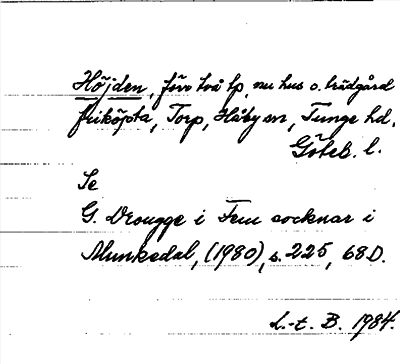 Höjden, förr två tp, nu hus o. trädgård
friköpta, Torp, Håby sn, Tunge hd,
Göteb. l.
Se
G. Drougge i Fem socknar i
Munkedal, (1980), s. 225, 68D.
L.-t. B. 1984.